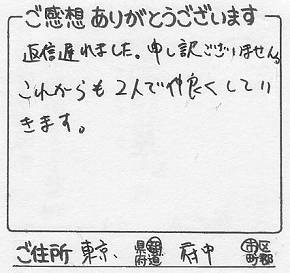 ご感想ありがとうございます
返信遅れました。申し訳ございません。
これからも2人で仲良くしてい
きます。
ご住所 東京 都道府県 府中 市区町郡